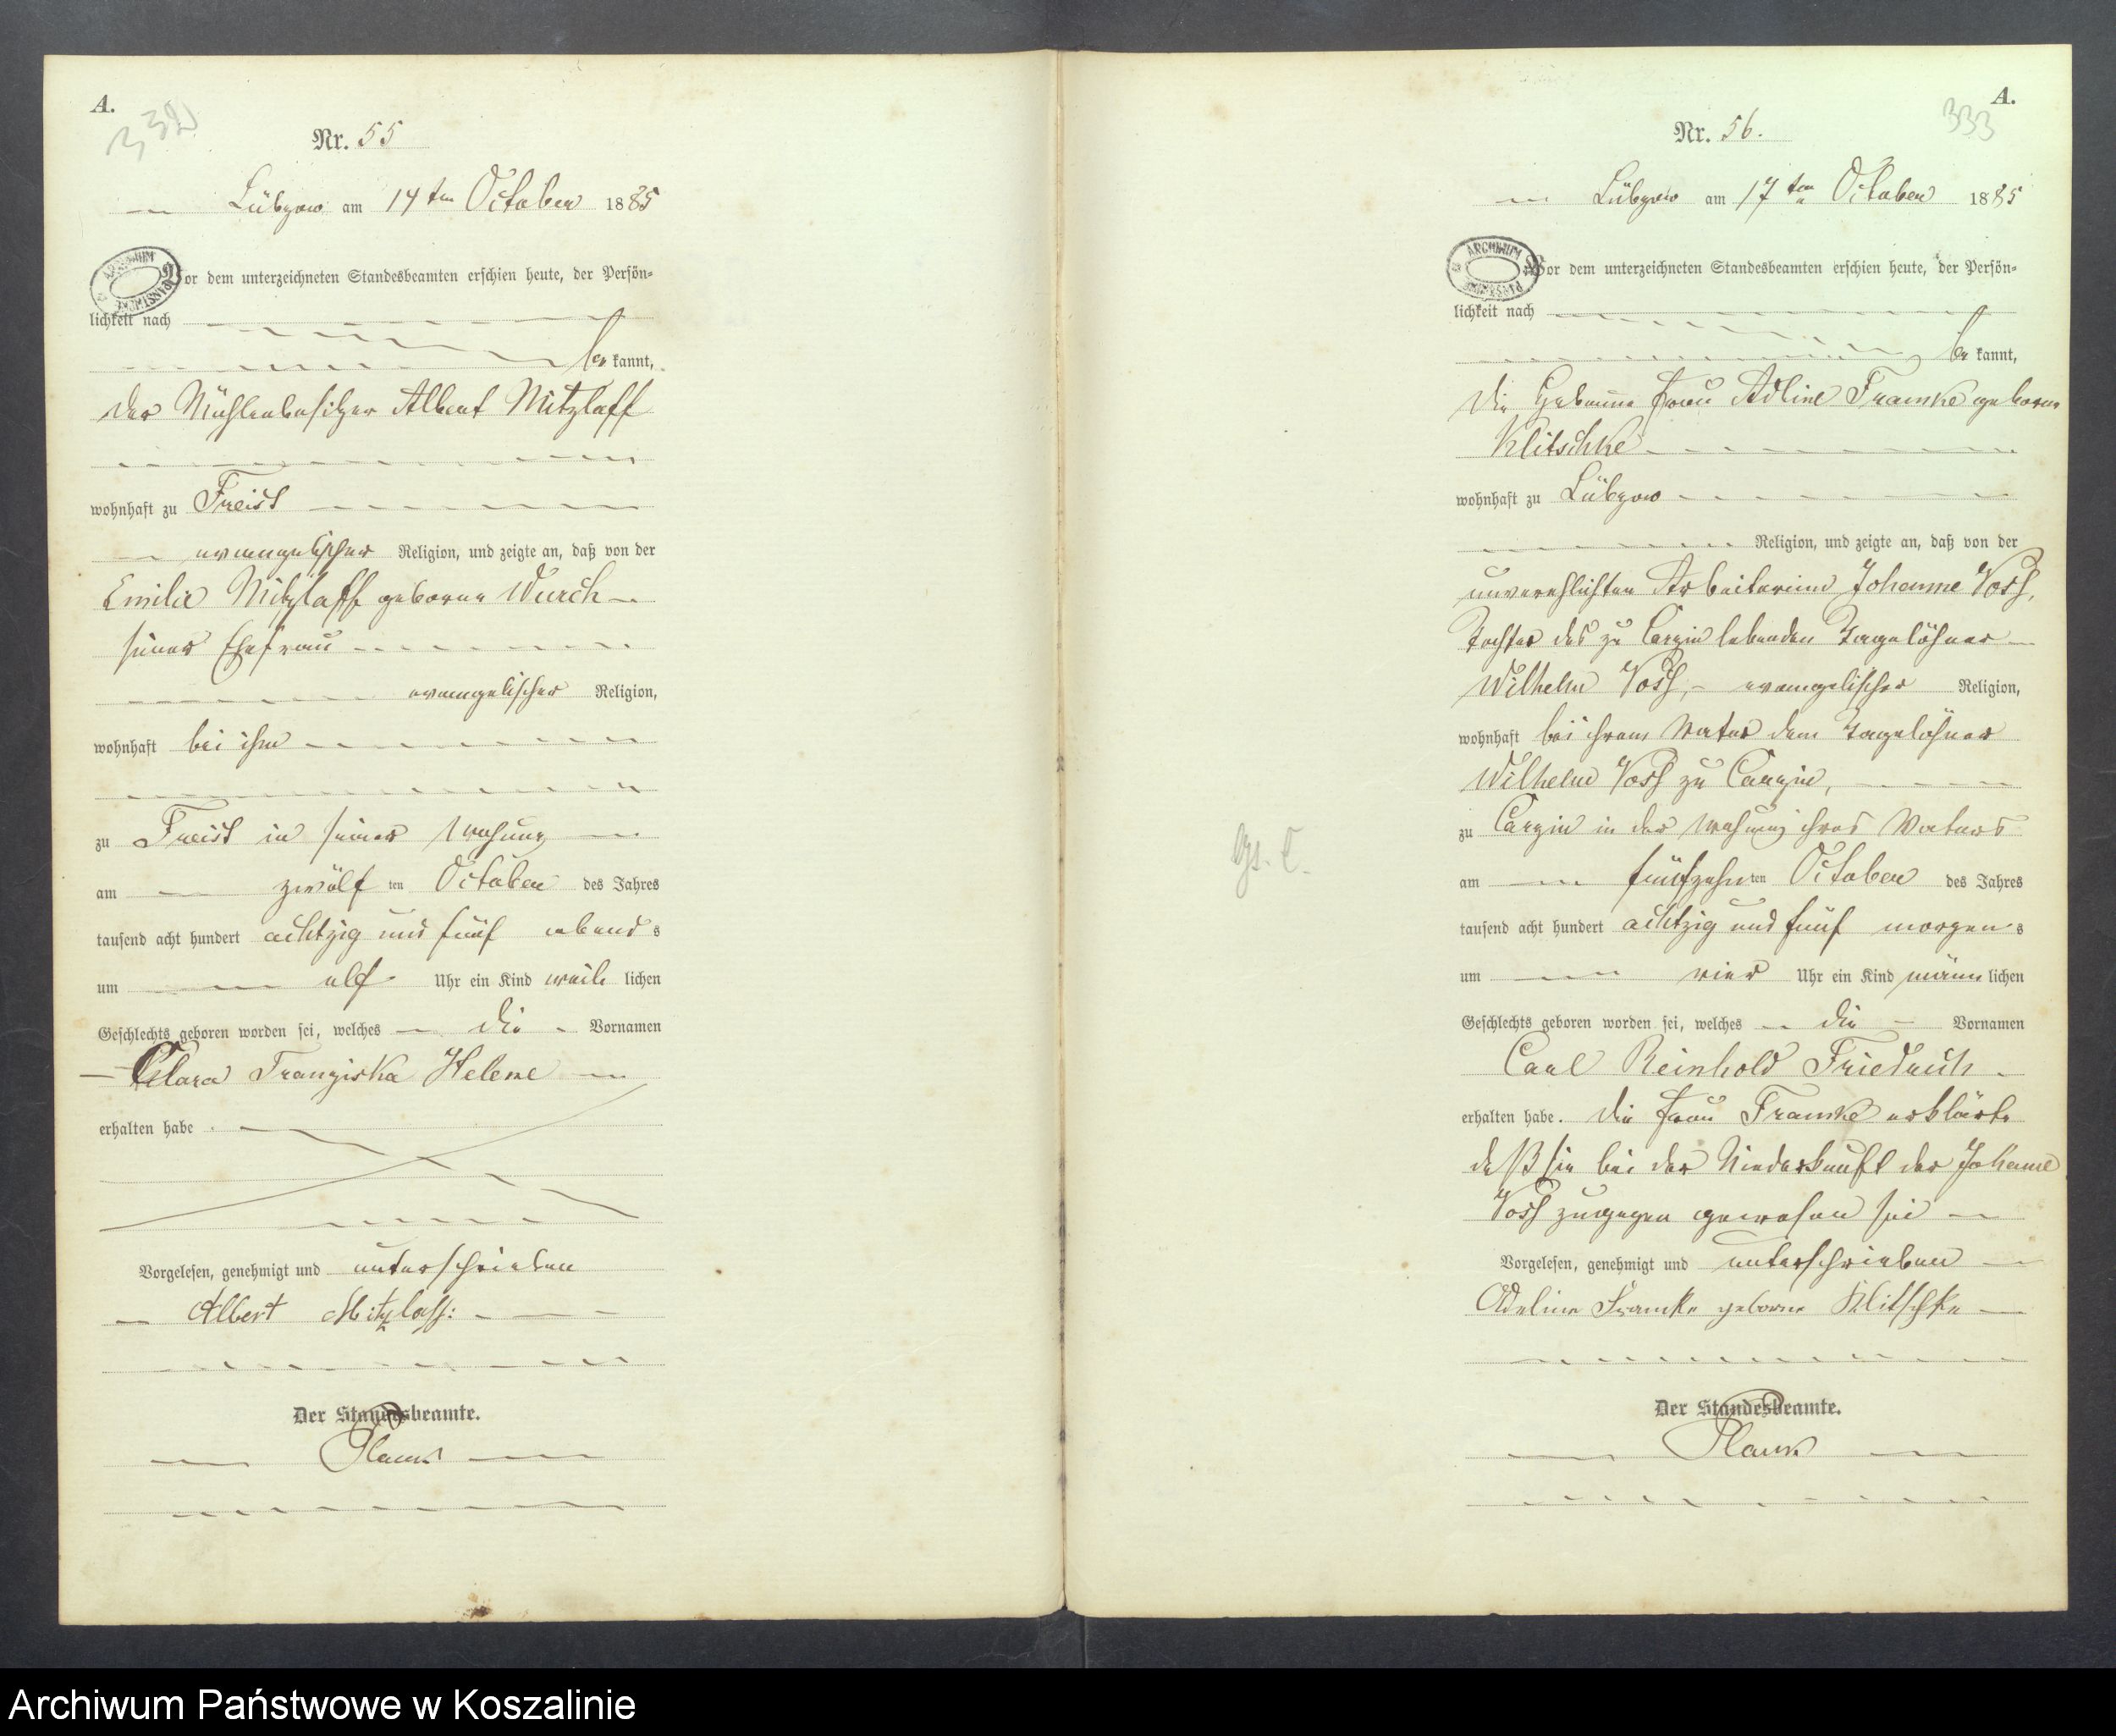 A.
332
Nr. 55
Lübzow am 14ten October 1885
Vor dem unterzeichneten Standesbeamten erschien heute, der Persön-
lichkeit nach
be kannt,
der Mühlenbesitzer Albert Mitzlaff
wohnhaft zu Freist
evangelischer Religion, und zeigte an, daß von der
Emilie Mitzlaff geborne Wurch
seiner Ehefrau
evangelischer Religion,
wohnhaft bei ihm
zu Freist in seiner Wohnung
am zwölf ten October des Jahres
tausend acht hundert achtzig und fünf abends
um elf Uhr ein Kind weib lichen
Geschlechts geboren worden sei, welches die Vornamen
Clara Franziska Helene
erhalten habe.
Vorgelesen, genehmigt und unterschrieben
Albert Mitzlaff.
Der Standesbeamte.
A.
333
Nr. 56.
Lübzow am 17ten October 1885
ARCHIWUM
Vor dem unterzeichneten Standesbeamten erschien heute, der Persön-
lichkeit nach
be kannt,
die Hebamme Frau Adline Framke geborne
Klitschke
wohnhaft zu Lübzow
Religion, und zeigte an, daß von der
unverehlichten Arbeiterinn Johanne Voss,
Tochter des zu Carzin lebenden Tagelöhner
Wilhelm Voss, evangelischer Religion,
wohnhaft bei ihrem Vater dem Tagelöhner
Wilhelm Voss zu Carzin,
zu Carzin in der Wohnung ihres Vaters
am fünfzehn ten October des Jahres
tausend acht hundert achtzig und fünf morgens
um vier Uhr ein Kind männ lichen
Geschlechts geboren worden sei, welches die Vornamen
Carl Reinhold Friedrich
erhalten habe. Die Frau Framke erklärte
daß sie bei der Niederkunft der Johanne
Voss zugegen gewesen sei
Vorgelesen, genehmigt und unterschrieben
Adeline Framke geborne Klitschke
Der Standesbeamte.
Archiwum Państwowe w Koszalinie